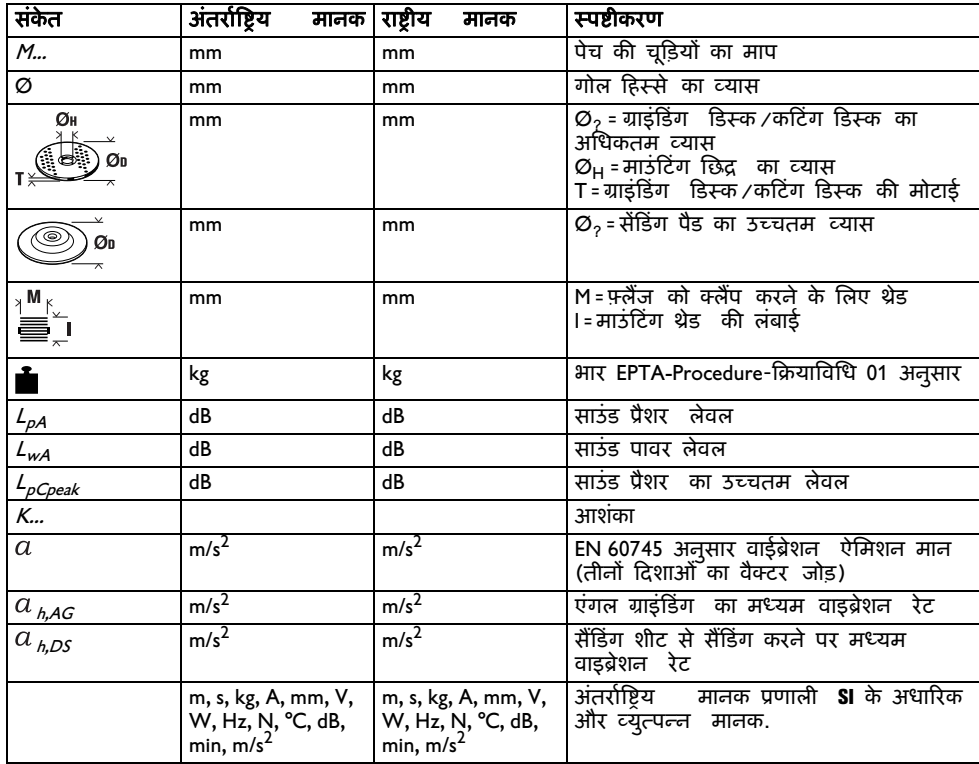 संकेत अंतर्राष्ट्रिय मानक राष्ट्रीय मानक स्पष्टीकरण
M... mm mm पेच की चूड़ियों का माप
Ø mm mm गोल हिस्से का व्यास
ØH ØD T mm mm Ø? = ग्राइंडिंग डिस्क/कटिंग डिस्क का
अधिकतम व्यास
ØH = माउंटिंग छिद्र का व्यास
T = ग्राइंडिंग डिस्क/कटिंग डिस्क की मोटाई
ØD mm mm Ø? = सेंडिंग पैड का उच्चतम व्यास
M l mm mm M = फ़्लैंज को क्लैंप करने के लिए थ्रेड
l = माउंटिंग थ्रेड की लंबाई
kg kg भार EPTA-Procedure-क्रियाविधि 01 अनुसार
LpA dB dB साउंड प्रैशर लेवल
LwA dB dB साउंड पावर लेवल
LpCpeak dB dB साउंड प्रैशर का उच्चतम लेवल
K... आशंका
a m/s² m/s² EN 60745 अनुसार वाईब्रेशन ऐमिशन मान
(तीनों दिशाओं का वैक्टर जोड़)
a h,AG m/s² m/s² एंगल ग्राइंडिंग का मध्यम वाइब्रेशन रेट
a h,DS m/s² m/s² सैंडिंग शीट से सैंडिंग करने पर मध्यम
वाइब्रेशन रेट
m, s, kg, A, mm, V, m, s, kg, A, mm, V, अंतर्राष्ट्रिय मानक प्रणाली SI के अधारिक
W, Hz, N, °C, dB, W, Hz, N, °C, dB, और व्युत्पन्न मानक.
min, m/s² min, m/s²